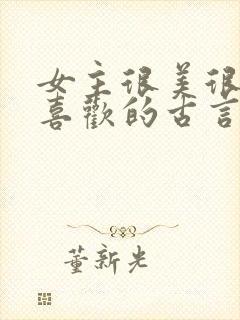 女主很美很
喜歡的古言
董新光